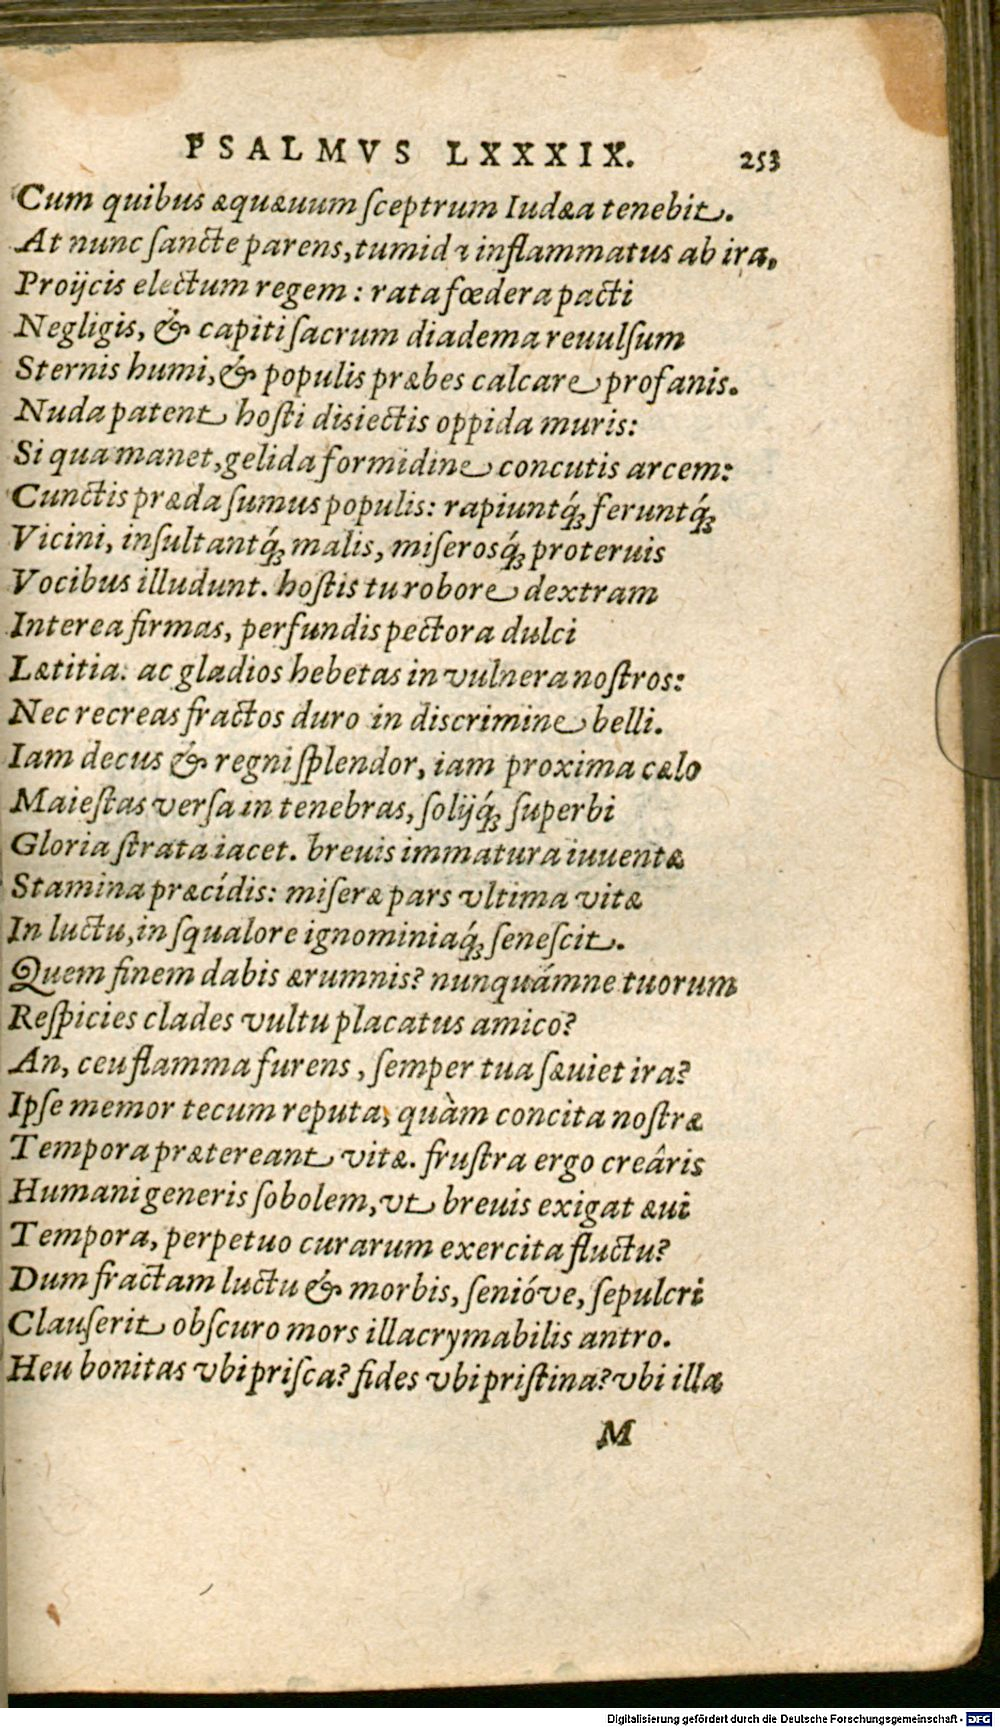 PSALMVS LXXXIX. 253
Cum quibus æquæuum ſceptrum Iudæa tenebit.
At nunc ſancte parens, tumida inflammatus ab ira,
Proijcis electum regem: rata fœdera pacti
Negligis, & capiti ſacrum diadema reuulſum
Sternis humi, & populis præbes calcare profanis.
Nuda patent hoſti disiectis oppida muris:
Si qua manet, gelida formidine concutis arcem:
Cunctis præda ſumus populis: rapiuntq́ꝫ feruntq́ꝫ
Vicini, inſultantq́ꝫ malis, miſerosq́ꝫ proteruis
Vocibus illudunt. hoſtis tu robore dextram
Interea firmas, perfundis pectora dulci
Lætitia: ac gladios hebetas in vulnera noſtros:
Nec recreas fractos duro in discrimine belli.
Iam decus & regni ſplendor, iam proxima cælo
Maieſtas verſa in tenebras, ſolijq́ꝫ ſuperbi
Gloria ſtrata iacet. breuis immatura iuuentæ
Stamina præcídis: miſeræ pars vltima vitæ
In luctu, in ſqualore ignominiaq́ꝫ ſeneſcit.
Quem finem dabis ærumnis? nunquámne tuorum
Reſpicies clades vultu placatus amico?
An, ceu flamma furens, ſemper tua ſæuiet ira?
Ipſe memor tecum reputa, quàm concita noſtræ
Tempora prætereant vitæ. fruſtra ergo creâris
Humani generis ſobolem, vt breuis exigat æui
Tempora, perpetuo curarum exercita fluctu?
Dum fractam luctu & morbis, ſenióve, ſepulcri
Clauſerit obſcuro mors illacrymabilis antro.
Heu bonitas vbi priſca? fides vbi priſtina? vbi illæ
M
Digitalisierung gefördert durch die Deutsche Forschungsgemeinschaft - DFG